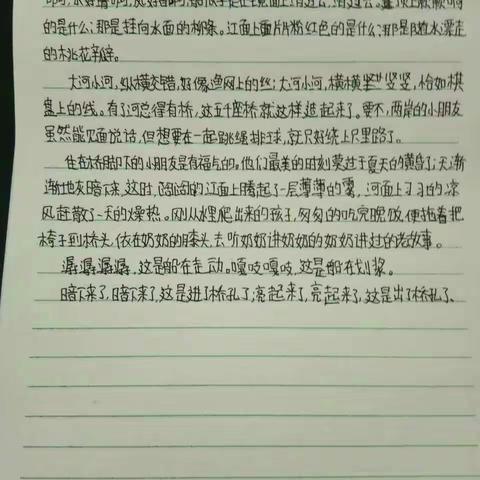 的是什么;那是挂向水面的柳条。江面上面片片粉红色的是什么;那是随水漂走
的桃花新瓣。
大河小河,纵横交错,好像渔网上的丝;大河小河,横横竖竖,恰如棋
盘上的线。有了河总得有桥,这五十座桥就这样造起来了。要不,两岸的小朋友
虽然能见面说话,但想要在一起跳绳排球,就只好绕上几里路了。
住在桥脚下的小朋友是有福气的。他们最美的时刻要过于夏天的黄昏了;天渐
渐地灰暗下来,这时,的江面上腾起了一层薄薄的雾,河面上习习的凉
风赶散了一天的燥热。刚从水里爬出来的孩子,匆匆的吃完晚饭,便拖着把
椅子到桥头,依在奶奶的膝头,去听奶奶讲奶奶的奶奶讲过的老故事。
潺潺潺潺,这是船在走动。嘎吱嘎吱,这是船在划桨。
暗下来了,暗下来了,这是进了桥孔了;亮起来了,亮起来了,这是出了桥孔了。